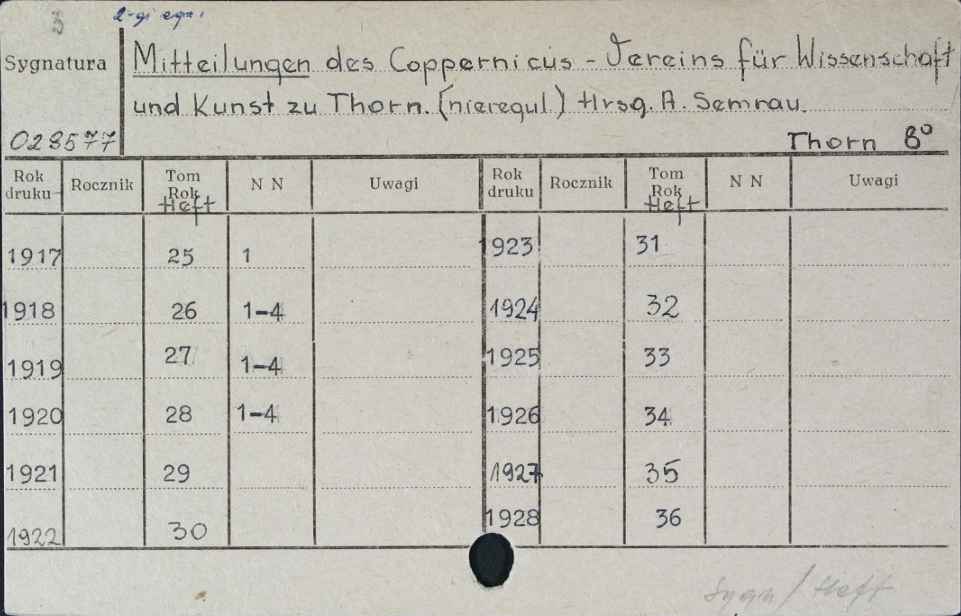 3
2-gi egz.
Sygnatura
Mitteilungen des Coppernicus - Vereins für Wissenschaft
und Kunst zu Thorn. (nieregul.) Hrsg. A. Semrau.
028577
Thorn 8°
Rok druku Rocznik Tom Rok Heft N N Uwagi Rok druku Rocznik Tom Rok Heft N N Uwagi
1917 25 1 1923 31
1918 26 1-4 1924 32
1919 27 1-4 1925 33
1920 28 1-4 1926 34
1921 29 1927 35
1922 30 1928 36
Sygn / Heft